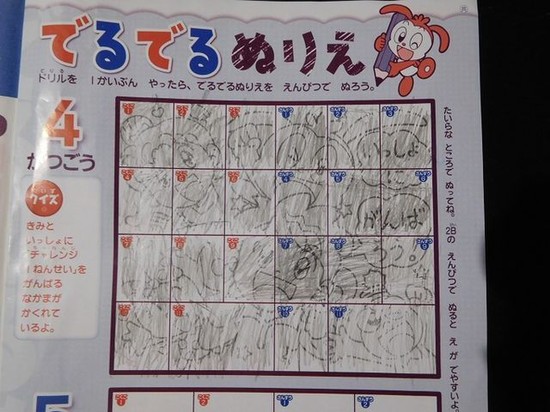 でるでるぬりえ
ドリルを 1かいぶん やったら、でるでるぬりえを えんぴつで ぬろう。
4
がつごう
クイズ
きみと
いっしょに
「チャレンジ
1ねんせい」を
がんばる
なかまが
かくれて
いるよ。
いっしょ
がんば
たいらな ところで ぬってね。2Bの えんぴつで ぬると え が でやすいよ。
5